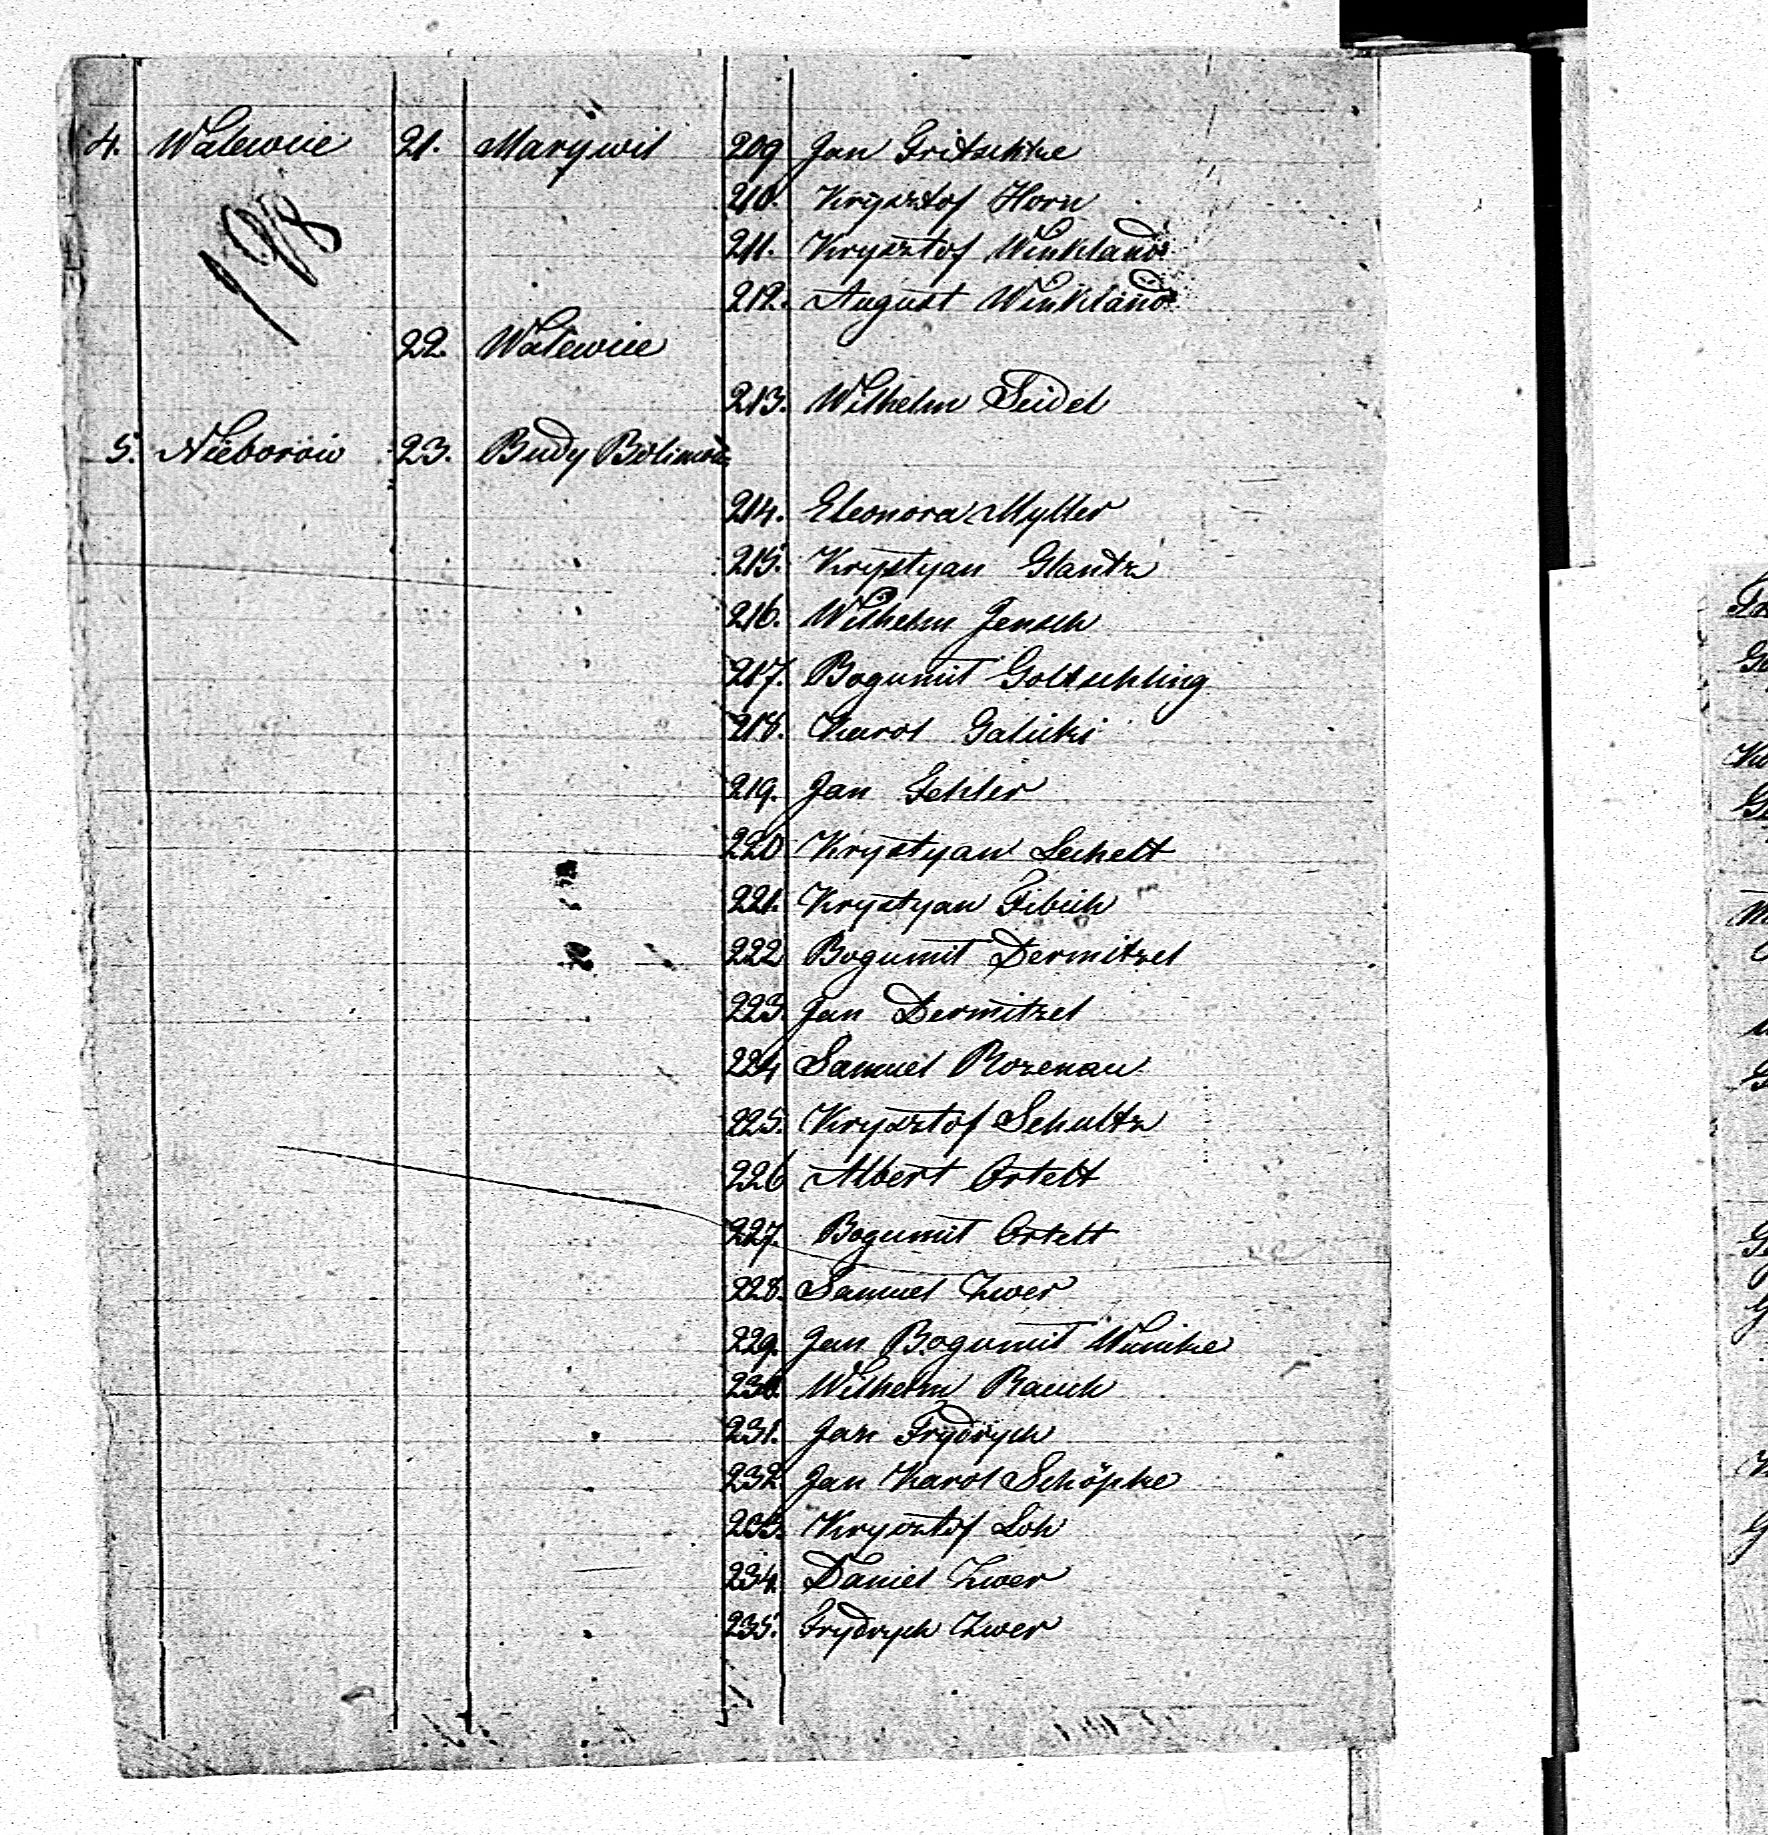 4. Walewice 21. Marywil 209 Jan Gritschke
210. Krysztof Horn
198
211. Krysztof Winkland
212. August Winkland
22. Walewice
213. Wilhelm Seidel
5. Nieborów 23. Budy Bolimow:
214. Eleonora Myller
215. Krystyan Glantz
216. Wilhelm Jensch
217. Bogumił Goltschling
218. Karol Galicki
219. Jan Gehler
220 Krystyan Lechelt
221. Krystyan Fibich
222 Bogumił Dermitzel
223 Jan Dermitzel
224 Samuel Rozenau
225. Krysztof Schultz
226 Albert Ortelt
227. Bogumił Ortelt
228. Samuel Zwer
229. Jan Bogumił
230. Wilhelm Rauch
231. Jan Frydrych
232 Jan Karol Schöpke
233. Krysztof Loh
234 Daniel Zwer
235. Frydrych Zwer